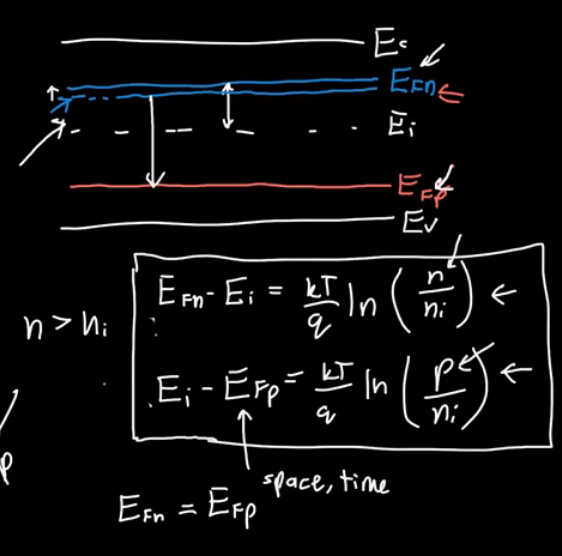 Ec
EFn
Ei
EFp
Ev
EFn - Ei = kT/q ln(n/ni) ←
n > ni
Ei - EFp = kT/q ln(p/ni) ←
p
space, time
EFn = EFp